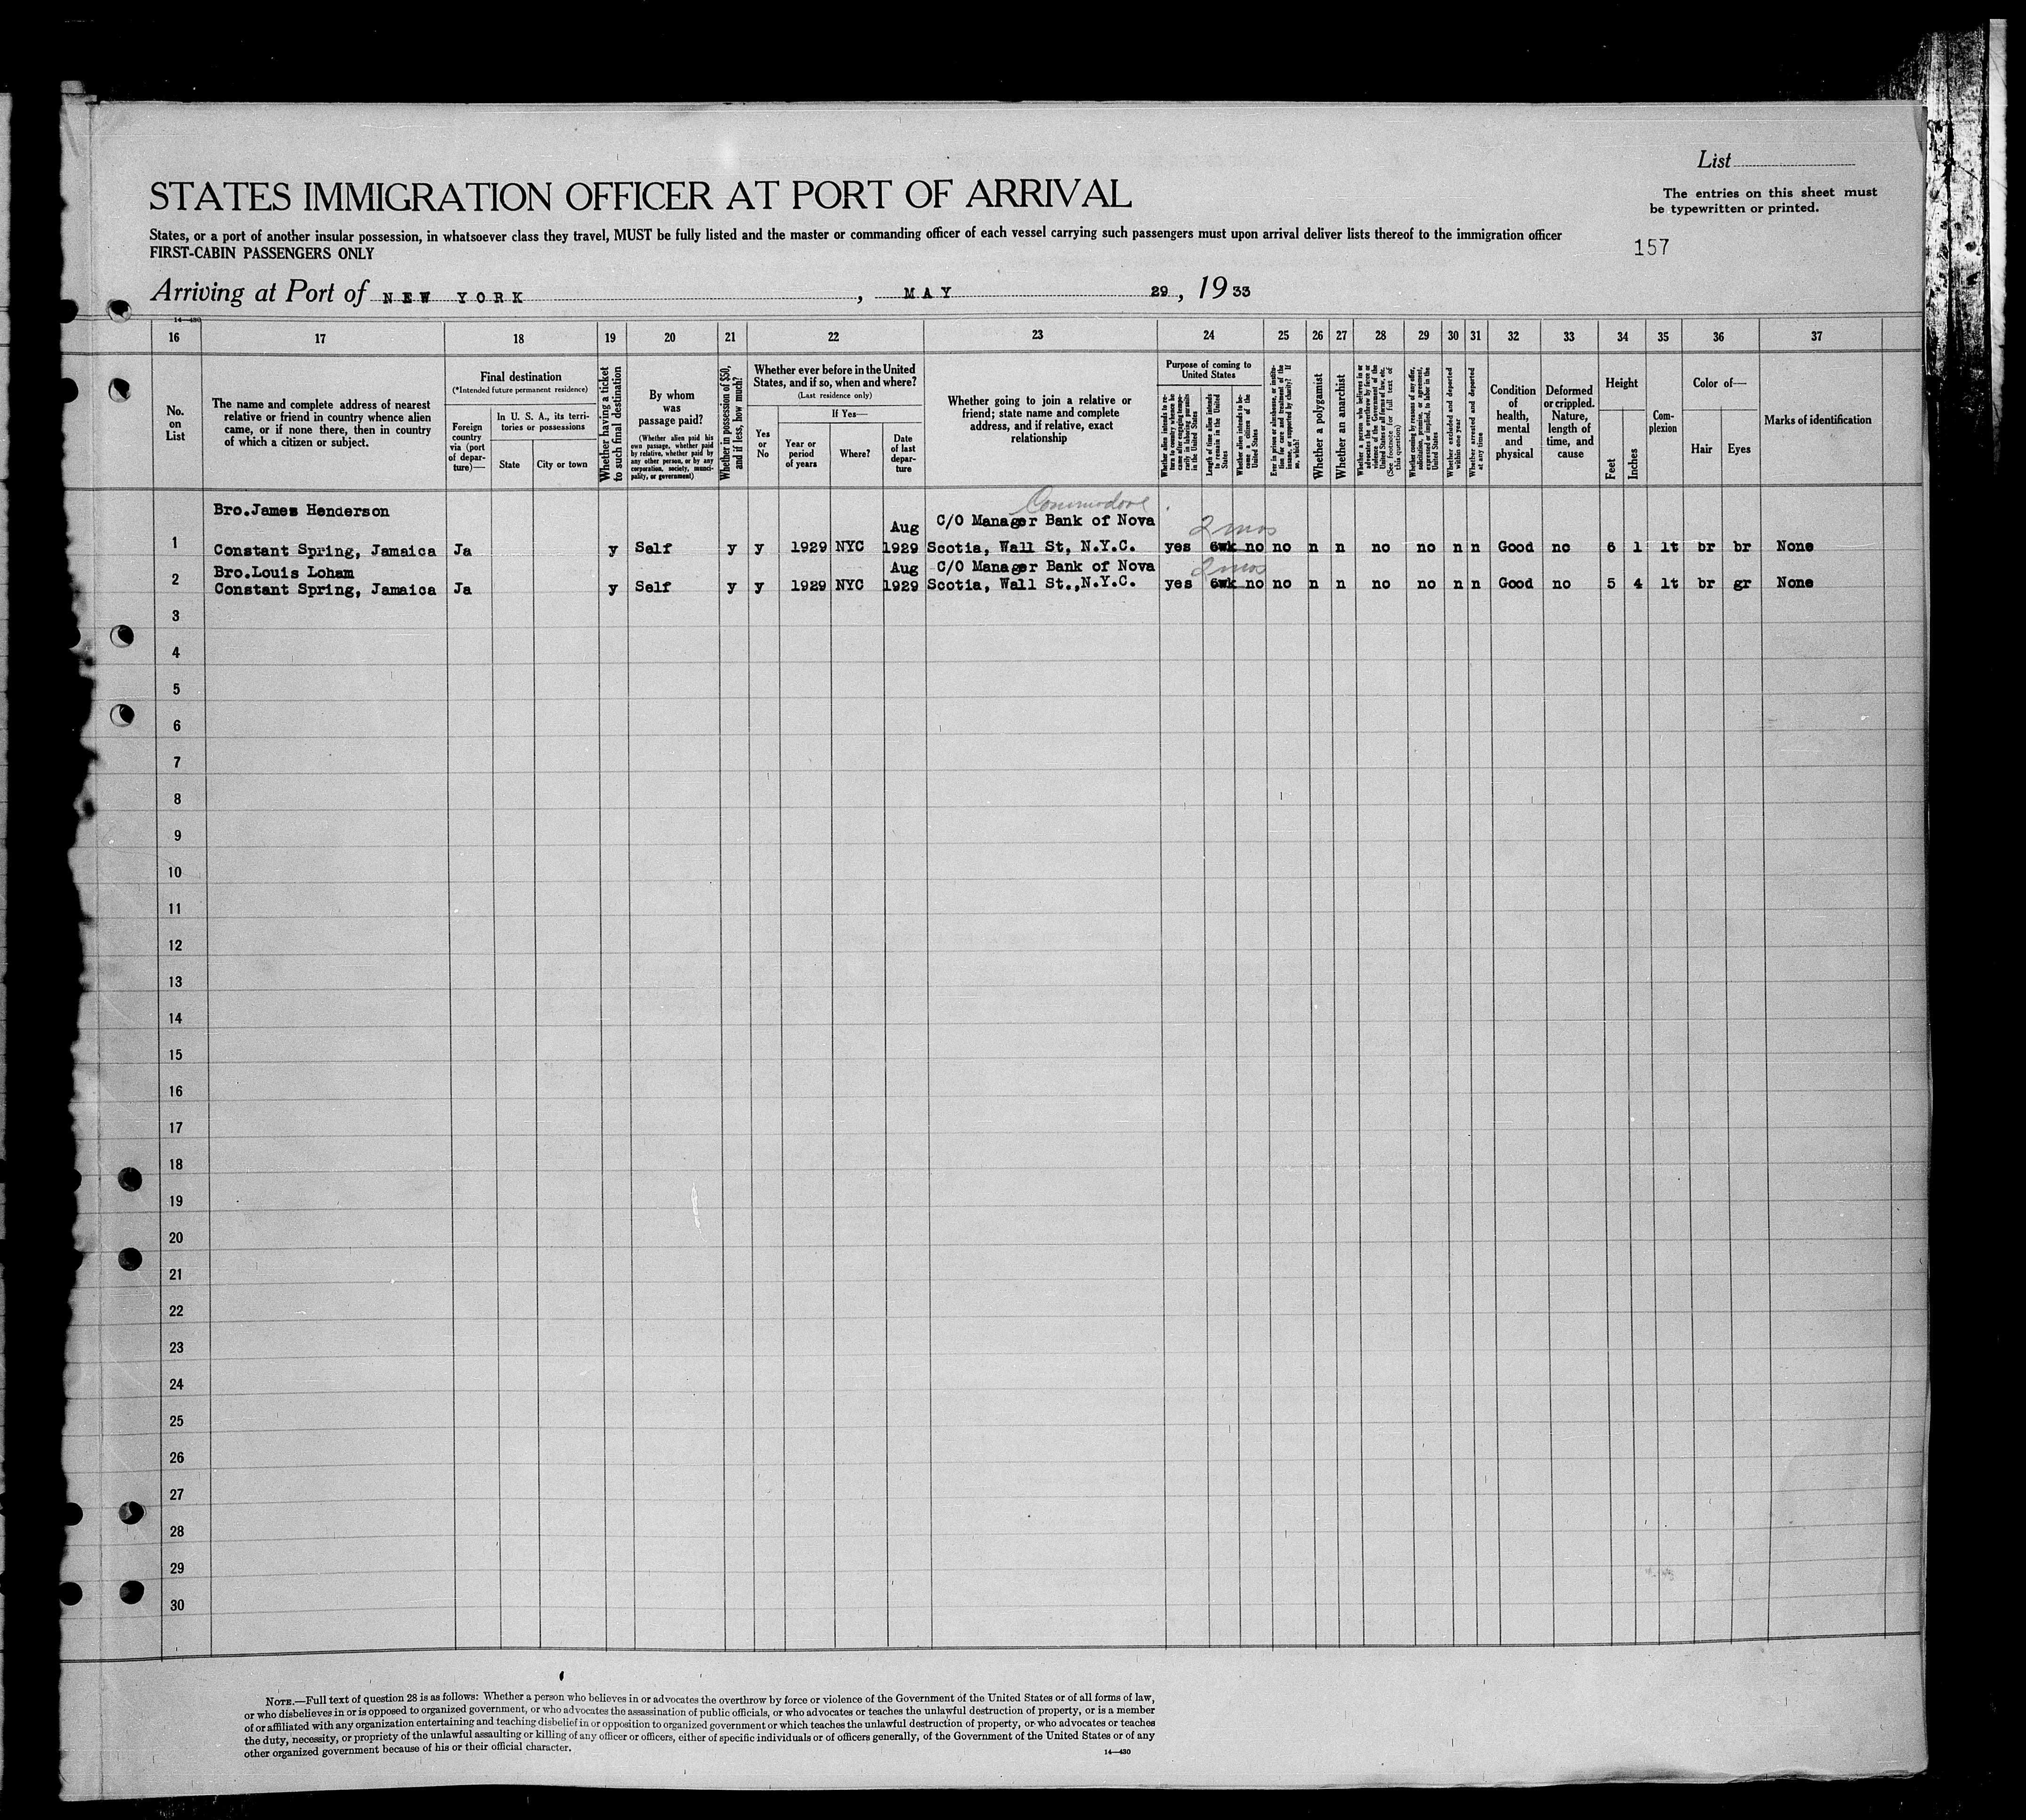 List
STATES IMMIGRATION OFFICER AT PORT OF ARRIVAL
The entries on this sheet must
be typewritten or printed.
States, or a port of another insular possession, in whatsoever class they travel, MUST be fully listed and the master or commanding officer of each vessel carrying such passengers must upon arrival deliver lists thereof to the immigration officer
FIRST-CABIN PASSENGERS ONLY
157
Arriving at Port of NEW YORK, MAY 29, 1933
14—430
16 17 18 19 20 21 22 23 24 25 26 27 28 29 30 31 32 33 34 35 36 37
No.
on
List
The name and complete address of nearest
relative or friend in country whence alien
came, or if none there, then in country
of which a citizen or subject.
Final destination
(*Intended future permanent residence)
Foreign
country
via (port
of depar-
ture)—
In U. S. A., its terri-
tories or possessions
State
City or town
Whether having a ticket
to such final destination
By whom
was
passage paid?
(Whether alien paid his
own passage, whether paid
by relative, whether paid by
any other person, or by any
corporation, society, munici-
pality, or government)
Whether in possession of $50,
and if less, how much?
Whether ever before in the United
States, and if so, when and where?
(Last residence only)
Yes
or
No
If Yes—
Year or
period
of years
Where?
Date
of last
depar-
ture
Whether going to join a relative or
friend; state name and complete
address, and if relative, exact
relationship
Purpose of coming to
United States
Whether alien intends to re-
turn to country whence he
came after engaging tempo-
rarily in laboring pursuits
in the United States
Length of time alien intends
to remain in the United
States
Whether alien intends to be-
come a citizen of the
United States
Ever in prison or almshouse, or institu-
tion for care and treatment of the
insane, or supported by charity? If
so, which?
Whether a polygamist
Whether an anarchist
Whether a person who believes in or
advocates the overthrow by force or
violence of the Government of the
United States or all forms of law, etc.
(See footnote for full text of
this question)
Whether coming by reasons of any offer,
solicitation, promise, or agreement,
expressed or implied, to labor in the
United States
Whether excluded and deported
within one year
Whether arrested and deported
at any time
Condition
of
health,
mental
and
physical
Deformed
or crippled.
Nature,
length of
time, and
cause
Height
Feet
Inches
Com-
plexion
Color of—
Hair
Eyes
Marks of identification
Commodore
Bro.James Henderson Aug C/O Manager Bank of Nova 2 mos
1 Constant Spring, Jamaica Ja y Self y y 1929 NYC 1929 Scotia, Wall St, N.Y.C. yes 6wk no no n n no no n n Good no 6 1 lt br br None
Bro.Louis Loham Aug C/O Manager Bank of Nova 2 mos
2 Constant Spring, Jamaica Ja y Self y y 1929 NYC 1929 Scotia, Wall St.,N.Y.C. yes 6wk no no n n no no n n Good no 5 4 lt br gr None
3
4
5
6
7
8
9
10
11
12
13
14
15
16
17
18
19
20
21
22
23
24
25
26
27
28
29
30
NOTE.—Full text of question 28 is as follows: Whether a person who believes in or advocates the overthrow by force or violence of the Government of the United States or of all forms of law,
or who disbelieves in or is opposed to organized government, or who advocates the assassination of public officials, or who advocates or teaches the unlawful destruction of property, or is a member
of or affiliated with any organization entertaining and teaching disbelief in or opposition to organized government or which teaches the unlawful destruction of property, or who advocates or teaches
the duty, necessity, or propriety of the unlawful assaulting or killing of any officer or officers, either of specific individuals or of officers generally, of the Government of the United States or of any
other organized government because of his or their official character.
14—430